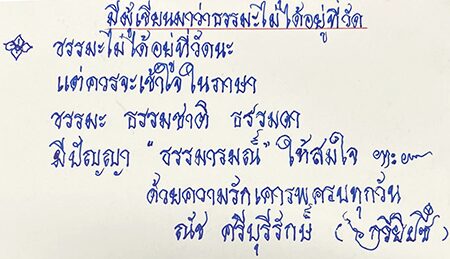 มีผู้เขียนมาว่าธรรมะไม่ได้อยู่ที่วัด
ธรรมะไม่ได้อยู่ที่วัดนะ
แต่ควรจะเข้าใจในภาษา
ธรรมะ ธรรมชาติ ธรรมดา
มีปัญญา "ธรรมารมณ์" ให้สมใจ
ด้วยความรักเคารพครบทุกวัน
ณัช ศรีบุรีรักษ์ (